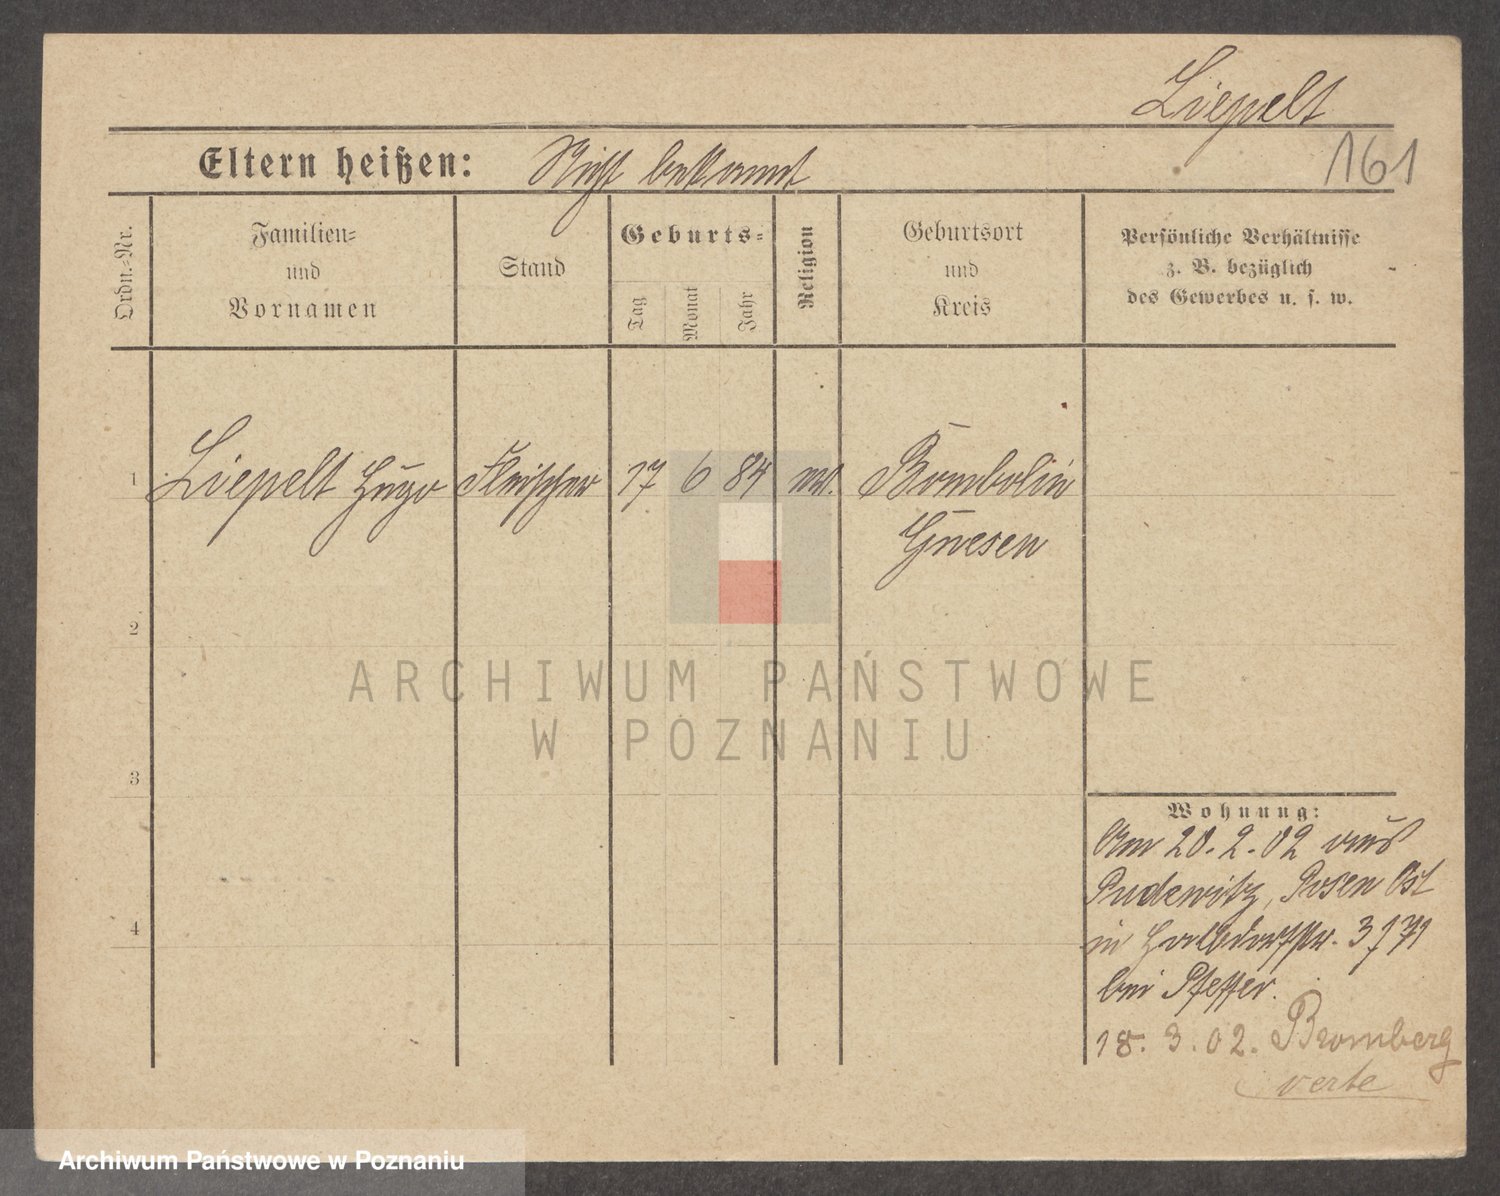 Liepelt
161
Eltern heißen: Nicht bekannt
Ordn.-Nr.
Familien-
und
Vornamen
Stand
Geburts-
Tag
Monat
Jahr
Religion
Geburtsort
und
Kreis
Persönliche Verhältnisse
z. B. bezüglich
des Gewerbes u. s. w.
1 Liepelt Hugo Fleischer 17 6 84 ev. Bombolin
Gnesen
2
3
4
ARCHIWUM PAŃSTWOWE
W POZNANIU
Wohnung:
Am 20. 2. 02 aus
Pudewitz, Posen Ost
in Halbdorfstr.
bei Pfeffer.
18. 3. 02. Bromberg
verte
Archiwum Państwowe w Poznaniu